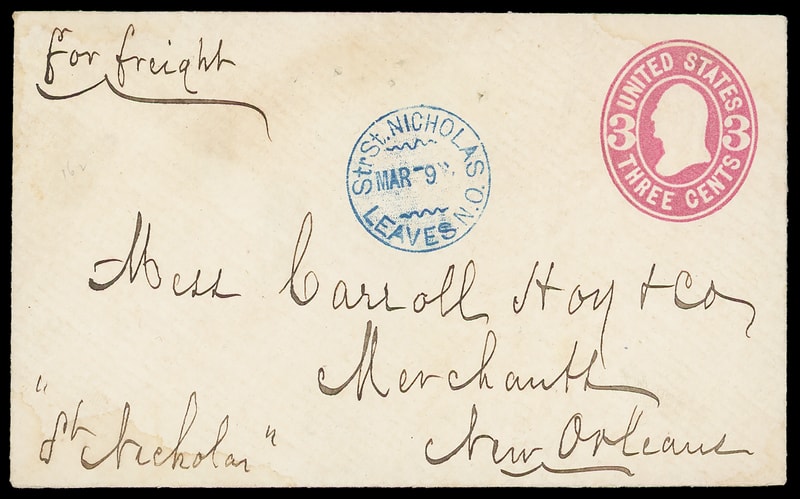 For freight
UNITED STATES
3 3
THREE CENTS
Str St. NICHOLAS
MAR 9
LEAVES N.O.
Mess Carroll Hoy & Co
Merchants
New Orleans
"St Nicholas"